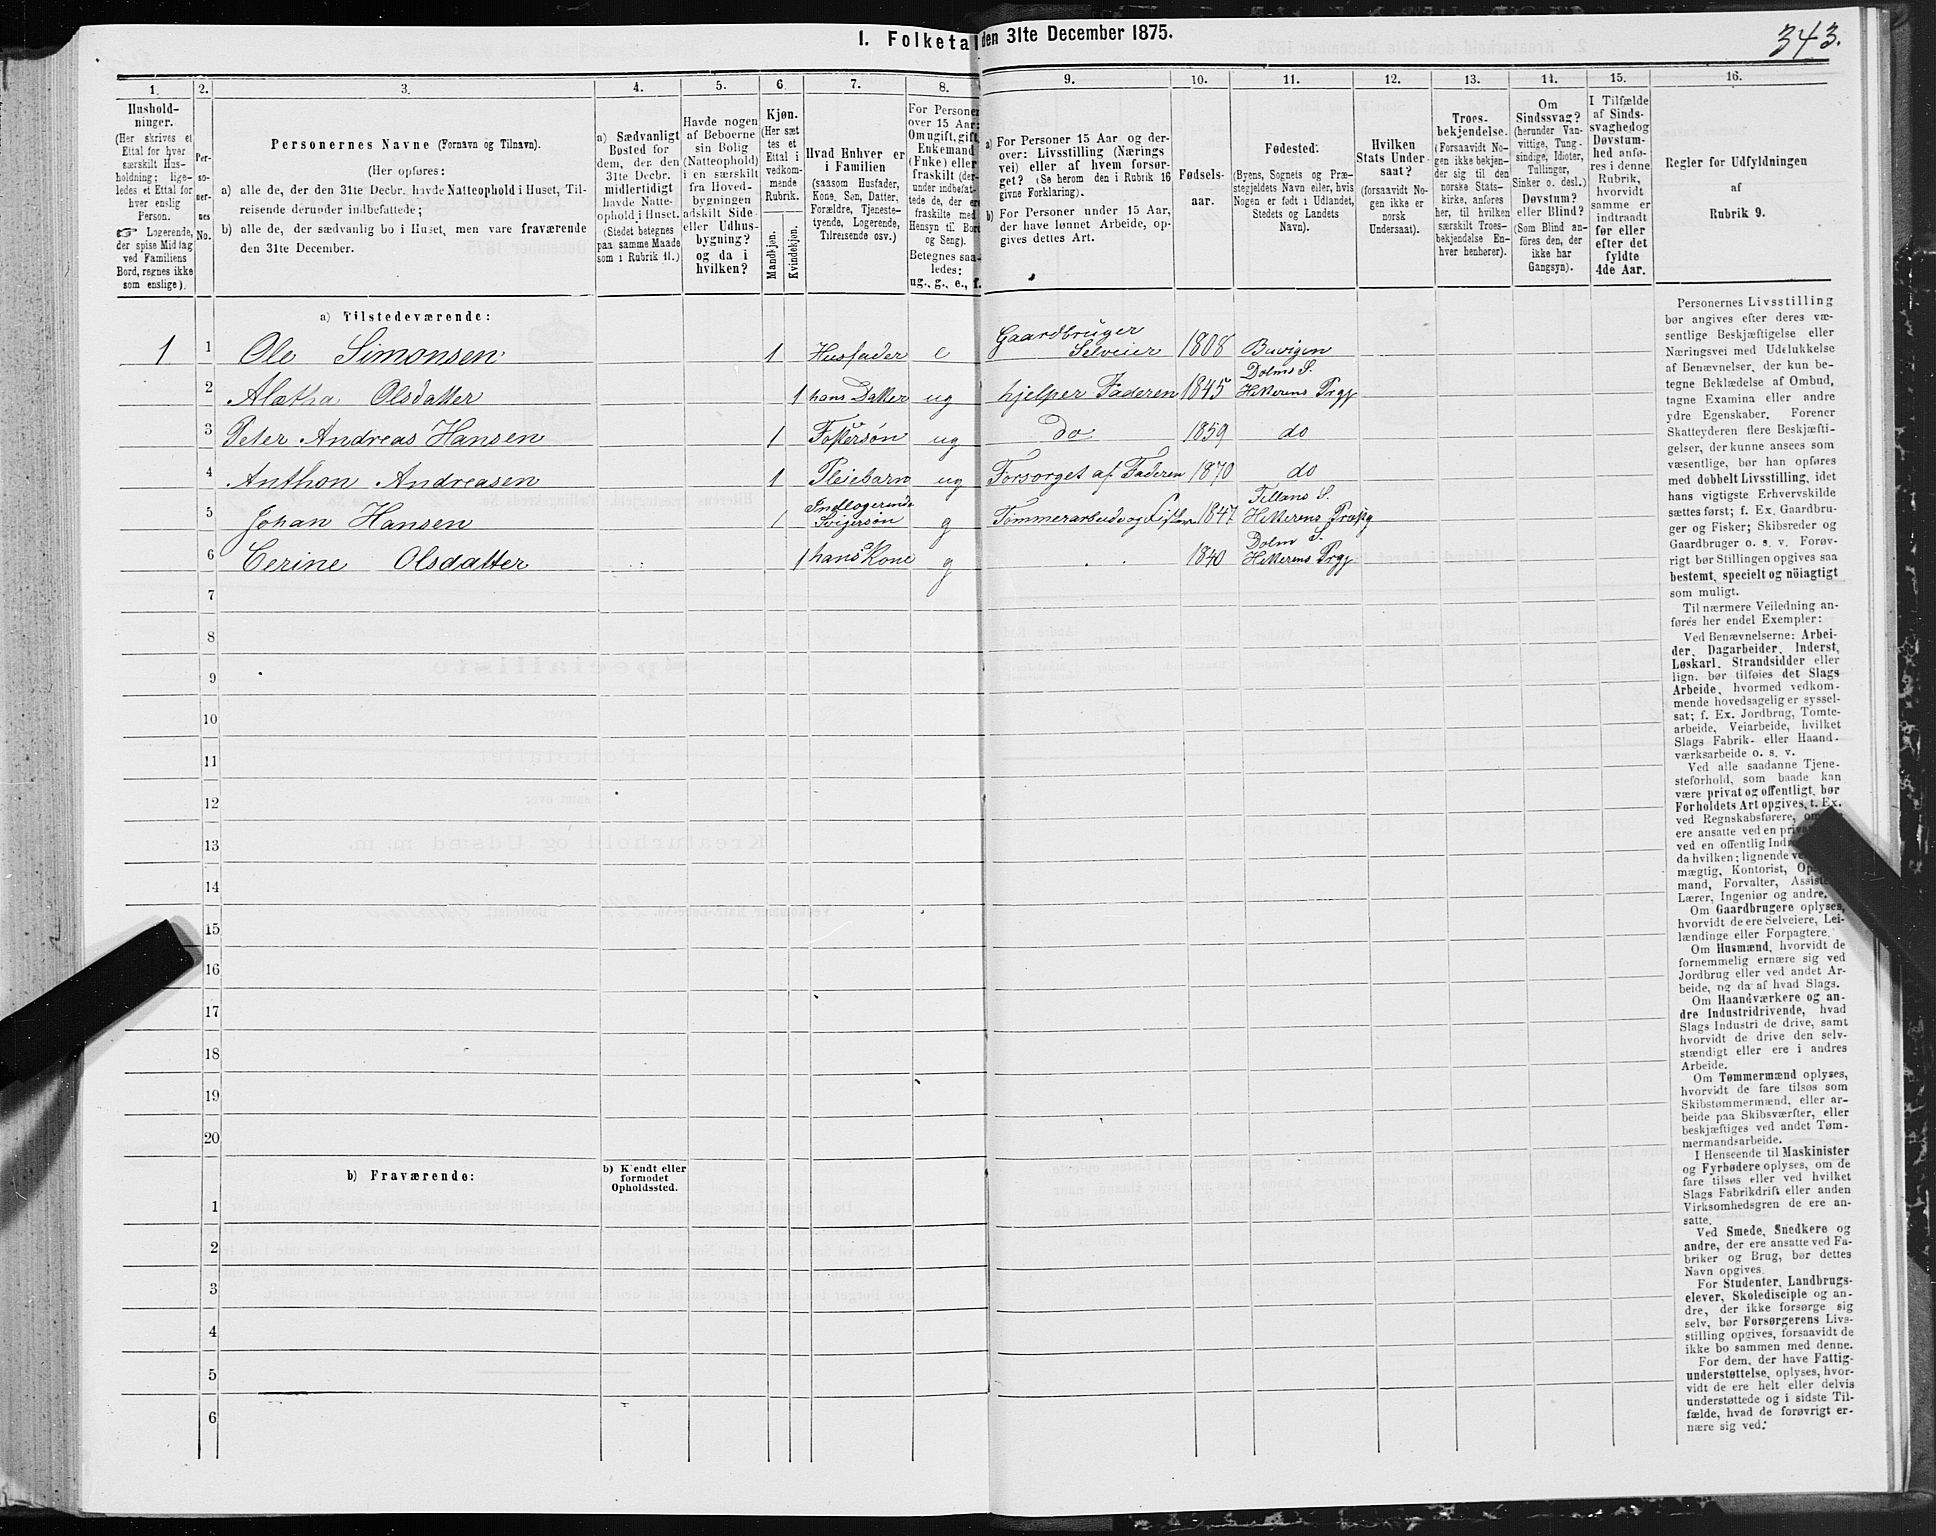 I. Folketal den 31te December 1875.
343.
1.
2.
3.
4.
5.
6.
7.
8.
9.
10.
11.
12.
13.
14.
15.
16.
Hushold-
ninger.
(Her skrives et
Ettal for hver
særskilt Hus-
holdning; lige-
ledes et Ettal for
hver enslig
Person.
☞ Logerende,
der spise Middag
ved Familiens
Bord, regnes ikke
som enslige).
Per-
so-
ner-
nes
No.
Personernes Navne (Fornavn og Tilnavn).
(Her opføres:
a) alle de, der den 31te Decbr. havde Natteophold i Huset, Til-
reisende derunder indbefattede;
b) alle de, der sædvanlig bo i Huset, men vare fraværende
den 31te December.
a) Sædvanligt
Bosted for
dem, der den
31te Decbr.
midlertidigt
havde Natte-
ophold i Huset.
(Stedet betegnes
paa samme Maade
som i Rubrik 11.)
Havde nogen
af Beboerne
sin Bolig
(Natteophold)
i en særskilt
fra Hoved-
bygningen
adskilt Side-
eller Udhus-
bygning?
og da i
hvilken?
Kjøn.
(Her sæt
tes et
Ettal i
vedkom-
mende
Rubrik.
Mandkjøn.
Kvindekjøn.
Hvad Enhver er
i Familien
(saasom Husfader,
Kone, Søn, Datter,
Forældre, Tjeneste-
tyende, Logerende,
Tilreisende osv.)
For Personer
over 15 Aar:
Om ugift, gift,
Enkemand
(Enke) eller
fraskilt (der-
under indbefat-
tede de, der ere
fraskilte med
Hensyn til Bord
og Seng).
Betegnes saa-
ledes:
ug., g., e., f.
a) For Personer 15 Aar og der-
over: Livsstilling (Nærings
vei) eller af hvem forsør-
get? (Se herom den i Rubrik 16
givne Forklaring).
b) For Personer under 15 Aar,
der have lønnet Arbeide, op-
gives dettes Art.
Fødsels-
aar.
Fødested.
(Byens, Sognets og Præ-
stegjeldets Navn eller, hvis
Nogen er født i Udlandet,
Stedets og Landets
Navn).
Hvilken
Stats Under-
saat?
(forsaavidt No-
gen ikke er
norsk
Undersaat).
Troes-
bekjendelse.
(Forsaavidt No-
gen ikke bekjen-
der sig til den
norske Stats-
kirke, anføres
her, til hvilken
særskilt Troes-
bekjendelse En-
hver henhører).
Om
Sindssvag?
(herunder Van-
vittige, Tung-
sindige, Idioter,
Tullinger,
Sinker o. desl.)
Døvstum?
eller Blind?
(Som Blind an-
føres den, der
ikke har
Gangsyn).
I Tilfælde
af Sinds-
svaghed og
Døvstum-
hed anfø-
res i denne
Rubrik,
hvorvidt
samme er
indtraadt
før eller
efter det
fyldte
4de Aar.
Regler for Udfyldningen
af
Rubrik 9.
a) Tilstedeværende:
1 1 Ole Simonsen 1 Husfader e Gaardbruger
Selveier 1808 Buvigen
2 Aletha Olsdatter 1 hans Datter ug hjelper Faderen 1845 Dolms S.
Hitterens Prgj
3 Peter Andreas Hansen 1 Fostersøn ug do 1859 do
4 Anthon Andreasen 1 Pleiebarn ug Forsørget af Faderen 1870 do
5 Johan Hansen 1 Indlogerende
Svigersøn g Tømmerarbeide og Fisker 1847 Fillans S.
Hitterens Præstg
6 Cerine Olsdatter 1 hans Kone g 1840 Dolm S.
Hitterens Prgj
7
8
9
10
11
12
13
14
15
16
17
18
19
20
b) Fraværende:
b) Kjendt eller
formodet
Opholdssted.
1
2
3
4
5
6
Personernes Livsstilling
bør angives efter deres væ-
sentlige Beskjæftigelse eller
Næringsvei med Udelukkelse
af Benævnelser, der kun be-
tegne Beklædelse af Ombud,
tagne Examina eller andre
ydre Egenskaber. Forener
Skatteyderen flere Beskjæfti-
gelser, der kunne ansees som
væsentlige, bør han opføres
med dobbelt Livsstilling, idet
hans vigtigste Erhvervskilde
sættes først; f. Ex. Gaardbru-
ger og Fisker; Skibsreder og
Gaardbruger o. s. v. Forøv-
rigt bør Stillingen opgives saa
bestemt, specielt og nöiagtigt
som muligt.
Til nærmere Veiledning an-
føres her endel Exempler:
Ved Benævnelserne: Arbei-
der, Dagarbeider, Inderst,
Løskarl, Strandsidder eller
lign. bør tilføies det Slags
Arbeide, hvormed vedkom-
mende hovedsagelig er syssel-
sat; f. Ex. Jordbrug, Tomte-
arbeide, Veiarbeide, hvilket
Slags Fabrik- eller Haand-
værksarbeide o. s. v.
Ved alle saadanne Tjene-
steforhold, som baade kan
være privat og offentligt, bør
Forholdets Art opgives, t. Ex.
ved Regnskabsførere, om
ere ansatte ved en privat
ved en offentlig Ind
da hvilken; lignende ved
mægtig, Kontorist, Op
mand, Forvalter, Assist
Lærer, Ingeniør og andre.
Om Gaardbrugere oplyses,
hvorvidt de ere Selveiere, Lei-
lændinge eller Forpagtere.
Om Husmænd, hvorvidt de
fornemmelig ernære sig ved
Jordbrug eller ved andet Ar-
beide, og da af hvad Slags.
Om Haandværkere og an-
dre Industridrivende, hvad
Slags Industri de drive, samt
hvorvidt de drive den selv-
stændigt eller ere i andres
Arbeide.
Om Tømmermænd oplyses,
hvorvidt de fare tilsøs som
Skibstømmermænd, eller ar-
beide paa Skibsværfter, eller
beskjæftiges ved andet Tøm-
mermandsarbeide.
I Henseende til Maskinister
og Fyrbødere oplyses, om de
fare tilsøs eller ved hvilket
Slags Fabrikdrift eller anden
Virksomhedsgren de ere an-
satte.
Ved Smede, Snedkere og
andre, der ere ansatte ved Fa-
briker og Brug, bør dettes
Navn opgives.
For Studenter, Landbrugs-
elever, Skoledisciple og an-
dre, der ikke forsørge sig
selv, bør Forsørgerens Livs-
stilling opgives, forsaavidt de
ikke bo sammen med denne.
For dem, der have Fattig-
understøttelse, oplyses, hvor-
vidt de ere helt eller delvis
understøttede og i sidste Til-
fælde, hvad de forøvrigt er-
nære sig ved.